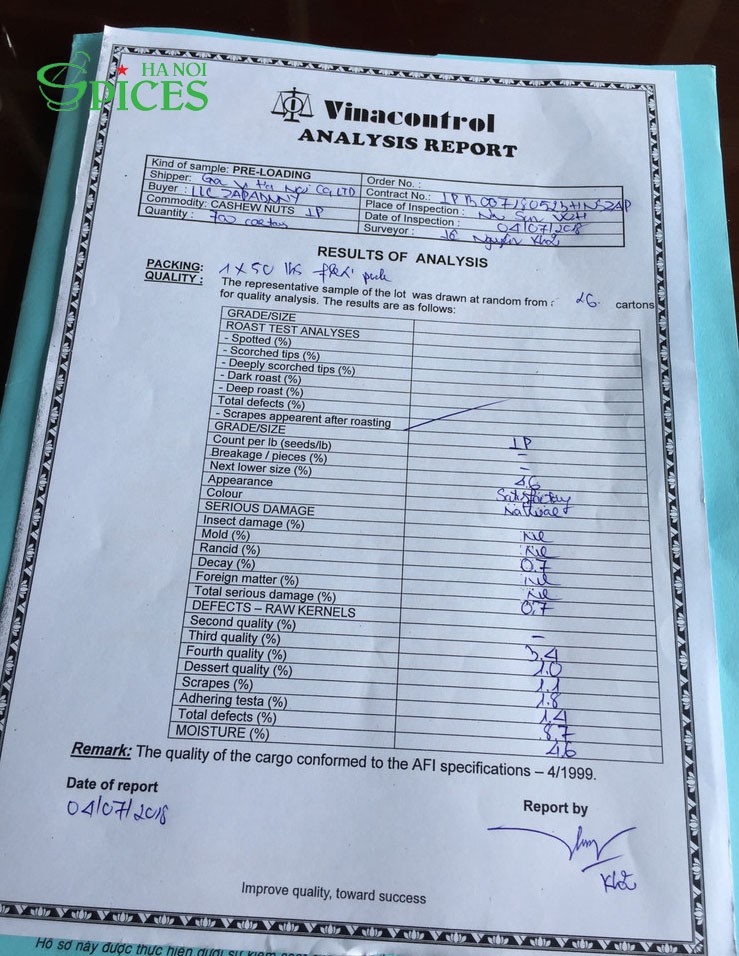 HANOI
SPICES
Vinacontrol
ANALYSIS REPORT
Kind of sample: PRE-LOADING
Order No. :
Shipper: Gia Vị Hà Nội Co, LTD
Contract No.:
Buyer : LLC
Place of Inspection :
Commodity: CASHEW NUTS LP
Date of Inspection : 04/07/2018
Quantity : 700
Surveyor : Nguyễn Khải
RESULTS OF ANALYSIS
PACKING: 1 x 50 lbs
QUALITY : The representative sample of the lot was drawn at random from : 26 cartons
for quality analysis. The results are as follows:
GRADE/SIZE
ROAST TEST ANALYSES
- Spotted (%)
- Scorched tips (%)
- Deeply scorched tips (%)
- Dark roast (%)
- Deep roast (%)
Total defects (%)
- Scrapes appearent after roasting
GRADE/SIZE LP
Count per lb (seeds/lb) –
Breakage / pieces (%) –
Next lower size (%) 4.6
Appearance Satisfactory
Colour Natural
SERIOUS DAMAGE
Insect damage (%) Nil
Mold (%) Nil
Rancid (%) 0.7
Decay (%) Nil
Foreign matter (%) Nil
Total serious damage (%) 0.7
DEFECTS – RAW KERNELS
Second quality (%) –
Third quality (%) 3.4
Fourth quality (%) 1.0
Dessert quality (%) 1.1
Scrapes (%) 1.8
Adhering testa (%) 1.4
Total defects (%) 8.7
MOISTURE (%) 4.6
Remark: The quality of the cargo conformed to the AFI specifications – 4/1999.
Date of report
04/07/2018
Report by
Khải
Improve quality, toward success
Hồ sơ này được thực hiện dưới sự kiểm soát